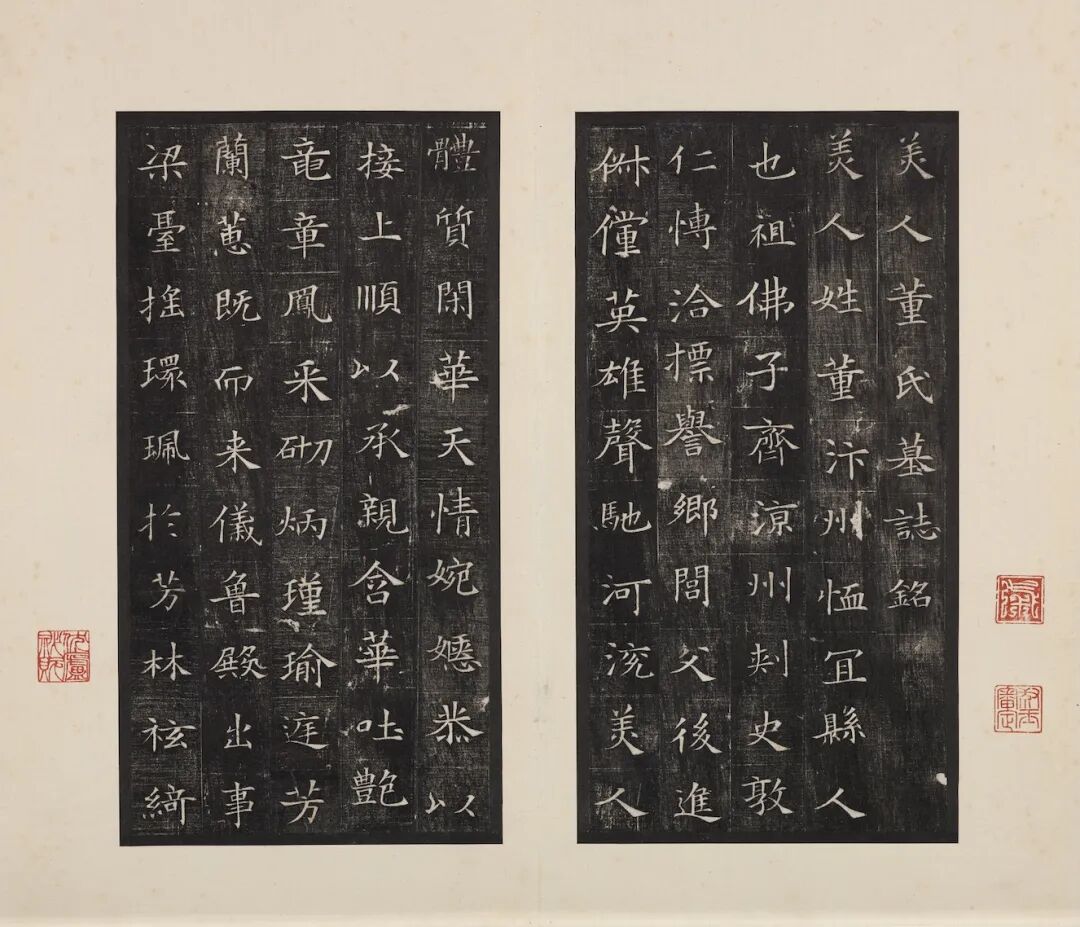 美人董氏墓誌銘
美人姓董汴州恤冝縣人
也祖佛子齊涼州刾史敦
仁愽洽摽譽鄉閭父後進
俶儻英雄聲馳河渷美人
體質閑華天情婉嫕恭以
接上順以承親含華吐艷
竜章鳳采砌炳瑾瑜庭芳
蘭蕙既而来儀魯殿出事
梁臺搖環珮於芳林袨綺